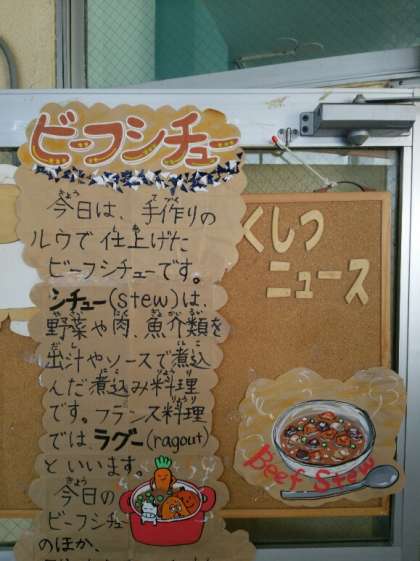 ビーフシチュー
今日は、手作りの
ルウで仕上げた
ビーフシチューです。
シチュー(stew)は、
野菜や肉、魚介類を
出汁やソースで煮込
んだ煮込み料理
です。フランス料理
では、ラグー(ragout)
といいます。
今日の
ビーフシチュー
のほか、
くしつ
ニュース
Beef Stew